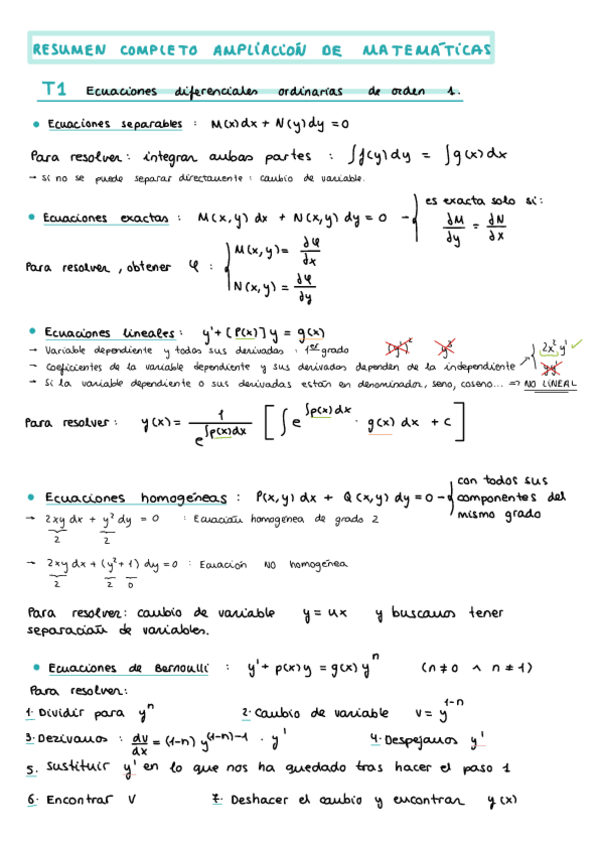 RESUMEN COMPLETO AMPLIACIÓN DE MATEMÁTICAS
T1 Ecuaciones diferenciales ordinarias de orden 1.
• Ecuaciones separables : M(x)dx + N(y)dy = 0
Para resolver: integrar ambas partes : ∫f(y)dy = ∫g(x)dx
→ Si no se puede separar directamente : cambio de variable.
• Ecuaciones exactas : M(x,y) dx + N(x,y) dy = 0 → { es exacta solo si: ∂M/∂y = ∂N/∂x
Para resolver, obtener φ : { M(x,y) = ∂φ/∂x
N(x,y) = ∂φ/∂y
• Ecuaciones lineales: y' + [P(x)] y = g(x)
→ Variable dependiente y todos sus derivadas : 1er grado (y')² y³
→ Coeficientes de la variable dependiente y sus derivadas dependen de la independiente { 2x² y' ✓
yy'
→ Si la variable dependiente o sus derivadas están en denominador, seno, coseno... => NO LINEAL
Para resolver: y(x) = 1/e^∫p(x)dx [ ∫ e^∫p(x)dx · g(x) dx + C ]
• Ecuaciones homogéneas : P(x,y) dx + Q(x,y) dy = 0 → { con todos sus
componentes del
mismo grado
→ 2xy dx + y² dy = 0 : Ecuación homogénea de grado 2
2 2
→ 2xy dx + (y² + 1) dy = 0 : Ecuación NO homogénea
2 2 0
Para resolver: cambio de variable y = ux y buscamos tener
separación de variables.
• Ecuaciones de Bernoulli : y' + p(x)y = g(x) y^n (n ≠ 0 ∧ n ≠ 1)
Para resolver:
1. Dividir para y^n 2. Cambio de variable v = y^1-n
3. Derivamos : dv/dx = (1-n) y^(1-n)-1 · y' 4. Despejamos y'
5. Sustituir y' en lo que nos ha quedado tras hacer el paso 1
6. Encontrar V 7. Deshacer el cambio y encontrar y(x)